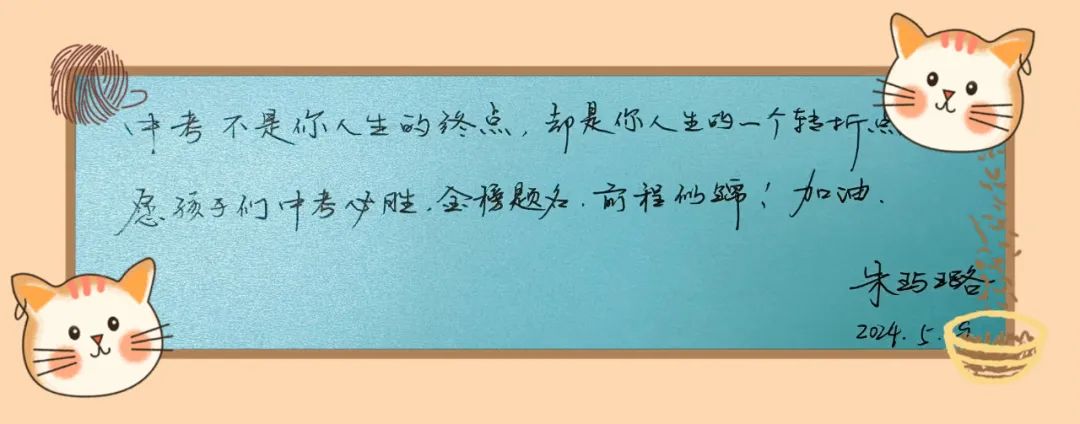 中考不是你人生的终点，却是你人生的一个转折点
愿孩子们中考必胜.金榜题名.前程似锦！加油.
朱玙璐
2024.5.